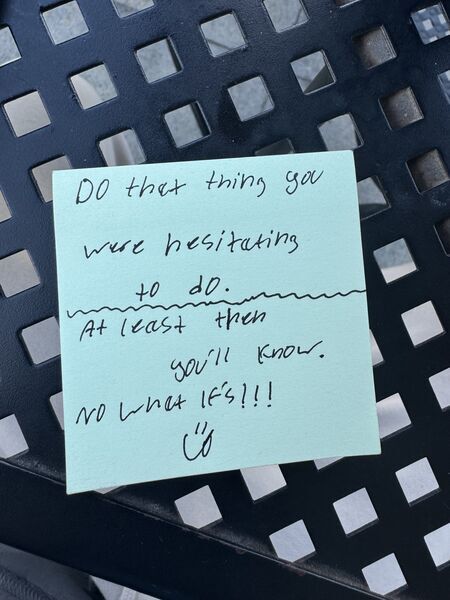 Do that thing you
were hesitating
to do.
At least then
you'll know.
No what if's!!!